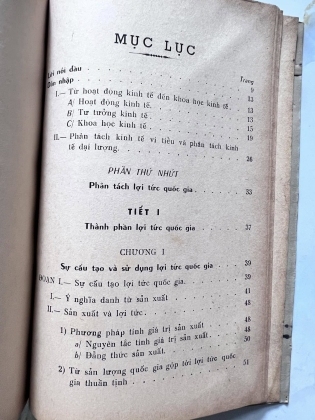 MỤC LỤC
Trang
Lời nói đầu 9
Dẫn nhập 11
I.— Từ hoạt động kinh tế đến khoa học kinh tế. 13
A/ Hoạt động kinh tế. 13
B/ Tư tưởng kinh tế. 15
C/ Khoa học kinh tế. 19
II.— Phân tách kinh tế vi tiểu và phân tách kinh
tế đại lượng.
PHẦN THỨ NHỨT
Phân tách lợi tức quốc gia. 33
TIẾT I
Thành phần lợi tức quốc gia. 37
CHƯƠNG I
Sự cấu tạo và sử dụng lợi tức quốc gia. 39
ĐOẠN I.— Sự cấu tạo lợi tức quốc gia. 40
I.— Ý nghĩa danh từ sản xuất 41
II.— Sản xuất và lợi tức. 48
1) Phương pháp tính giá trị sản xuất 48
a/ Nguyên tắc tính giá trị sản xuất. 48
b/ Đẳng thức sản xuất. 50
2) Từ sản lượng quốc gia góp tới lợi tức quốc
gia thuần tịnh. 51